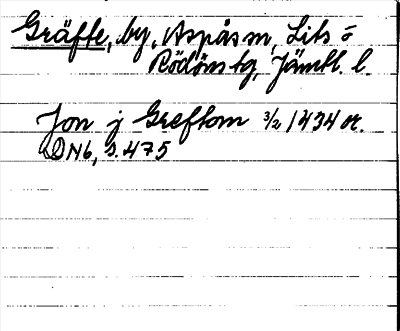 Gräfte, by, Aspås sn, Lits o
Rödöns tg, Jämtl. l.
Jon j Greftom 3/2 1434 or.
DN6, s. 475